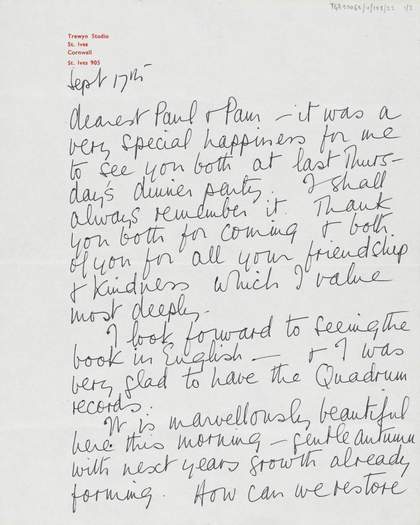 1/2
Trewyn Studio
St. Ives
Cornwall
St. Ives 905
Sept 17th
dearest Paul & Pam – it was a
very special happiness for me
to see you both at last Thurs-
day's dinner party. I shall
always remember it. Thank
you both for coming & both
of you for all your friendship
& kindness which I value
most deeply.
I look forward to seeing the
book in English – & I was
very glad to have the Quadrum
records.
It is marvellously beautiful
here this morning – gentle autumn
with next years growth already
forming. How can we restore